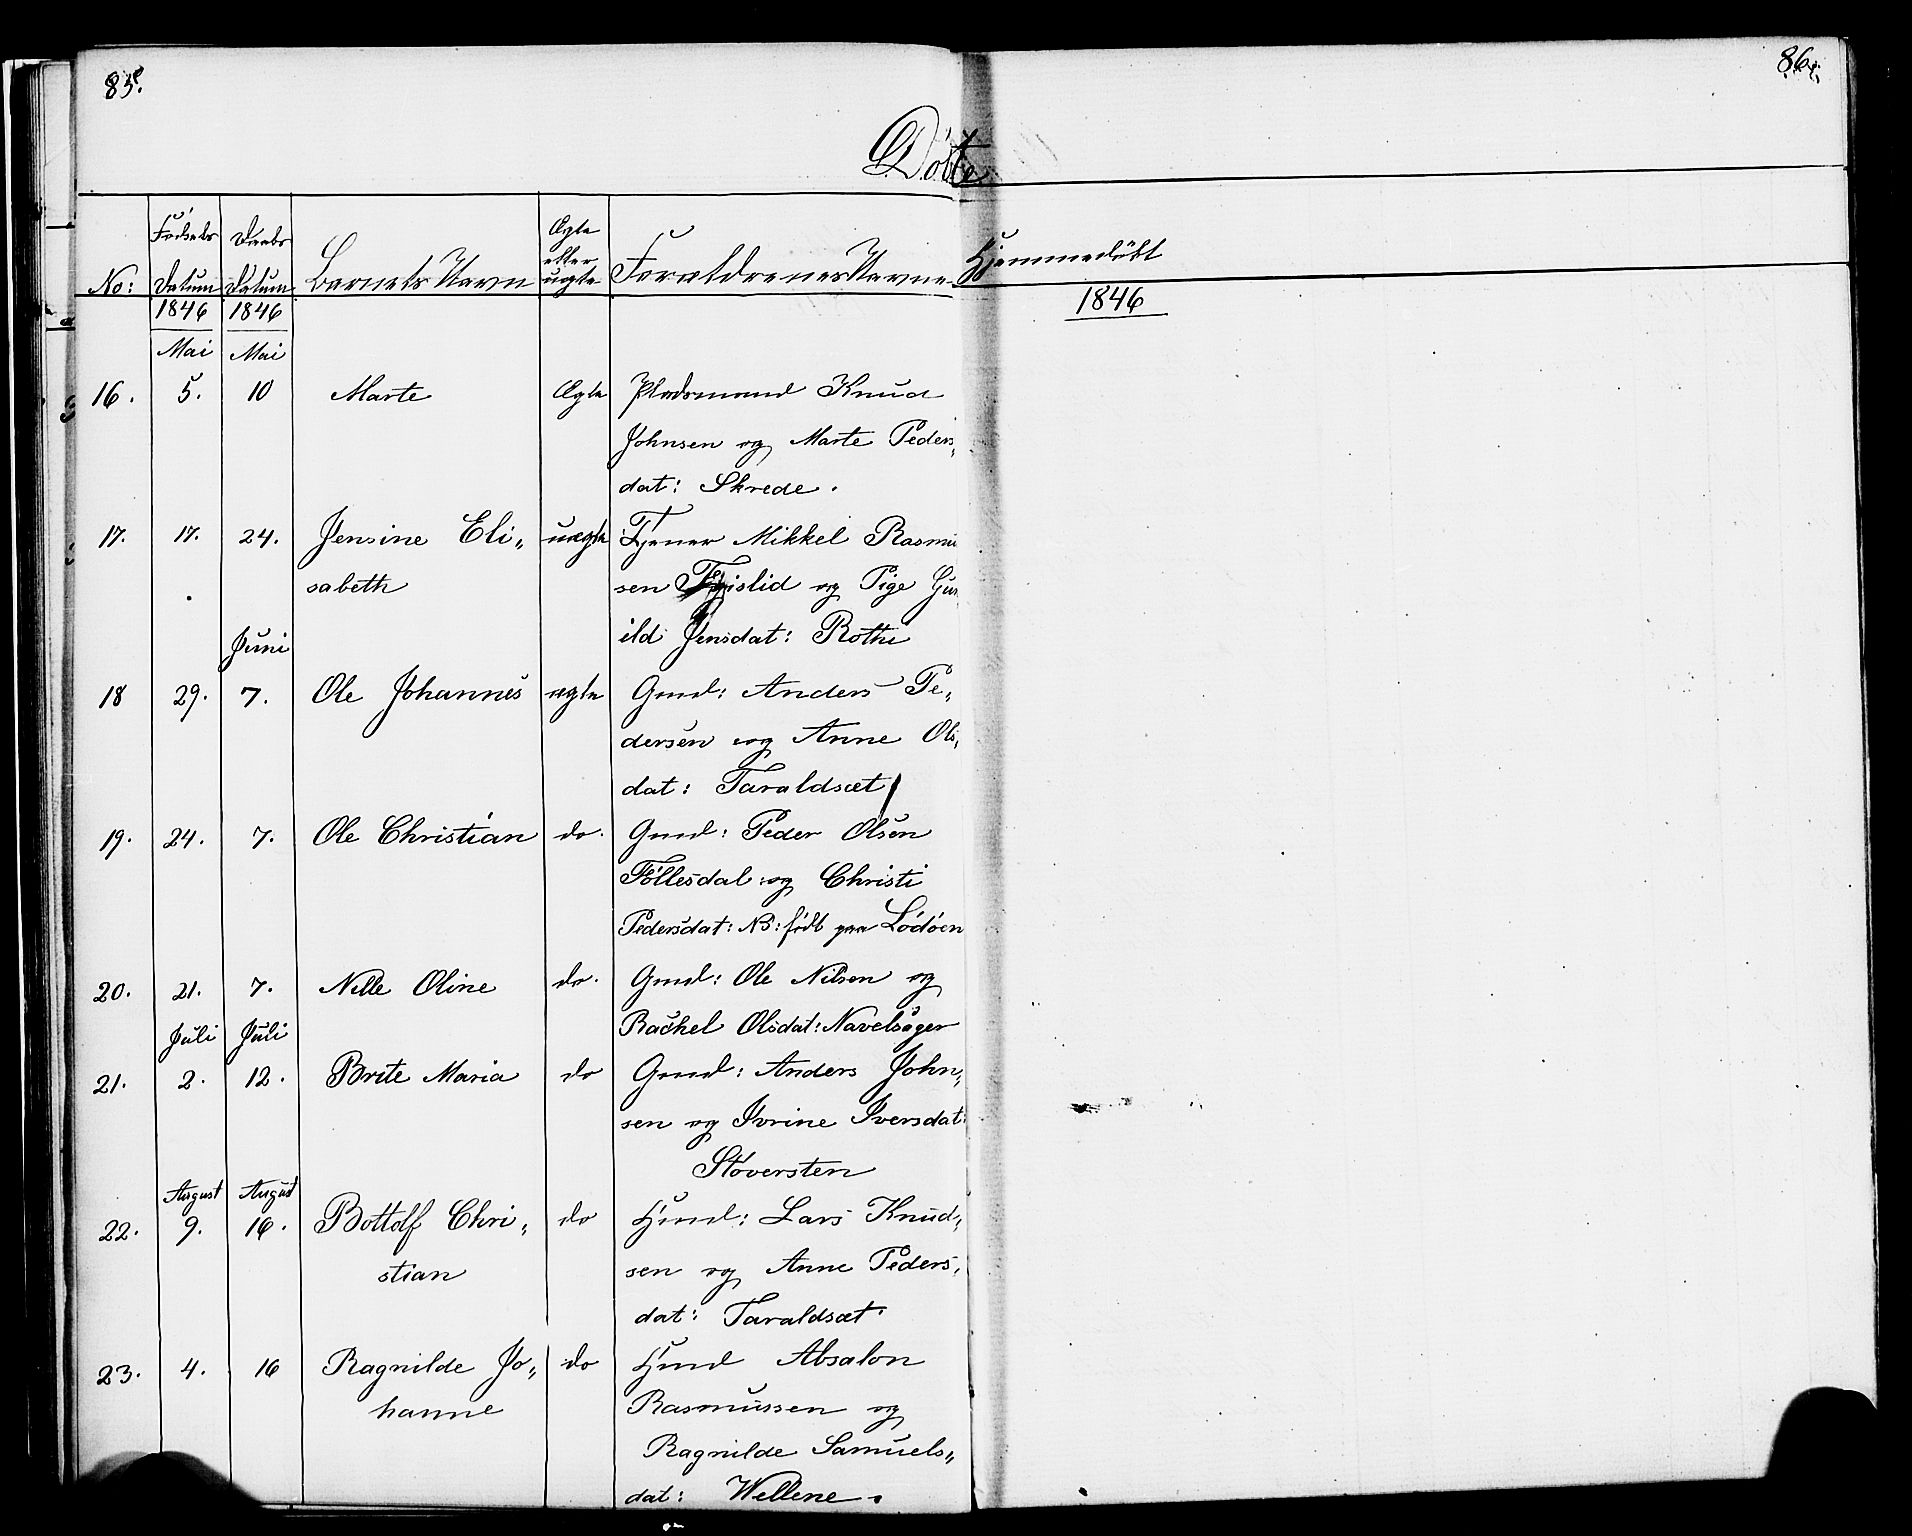 85.
86.
Döbte
No:
Fødsels Datum
Daabs Datum
Barnets Navn
Ægte eller uægte
Forældrenes Navne
Hjemmedöbt
1846
1846
1846
Mai
Mai
16. 5. 10 Marte Ægte Pladsmand Knud
Johnsen og Marte Peders„
dat: Skrede.
17. 17. 24. Jensine Eli„ uægte Tjener Mikkel Rasmu
sen og Pige Gun
sabeth
ild Jensdat: Rothe
Juni
18 29. 7. Ole Johannes ægte Gmd: Anders Pe„
dersen og Anne Ols„
dat: Taraldsæt
19. 24. 7. Ole Christian do. Gmd: Peder Olsen
Föllesdal og Christi
Pedersdat: NB: født paa Lödöen
20. 21. 7. Nille Oline do. Gmd: Ole Nilsen og
Rachel Olsdat: Navelsager
Juli Juli
21. 2. 12. Brite Maria do Gmd: Anders John„
sen og Ivrine Iversdat:
Stöversten
August August
22. 9. 16. Bottolf Chri„ do Hmd: Lars Knud„
stian sen og Anne Peders„
dat: Taraldsæt
23. 4. 16 Ragnilde Jo„ do Hmd Absalon
hanne Rasmussen og
Ragnilde Samuels„
dat: Wellene.